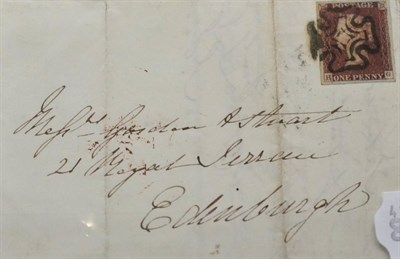 POSTAGE
ONE PENNY
Messrs Gordon & Stuart
21 Royal Terrace
Edinburgh